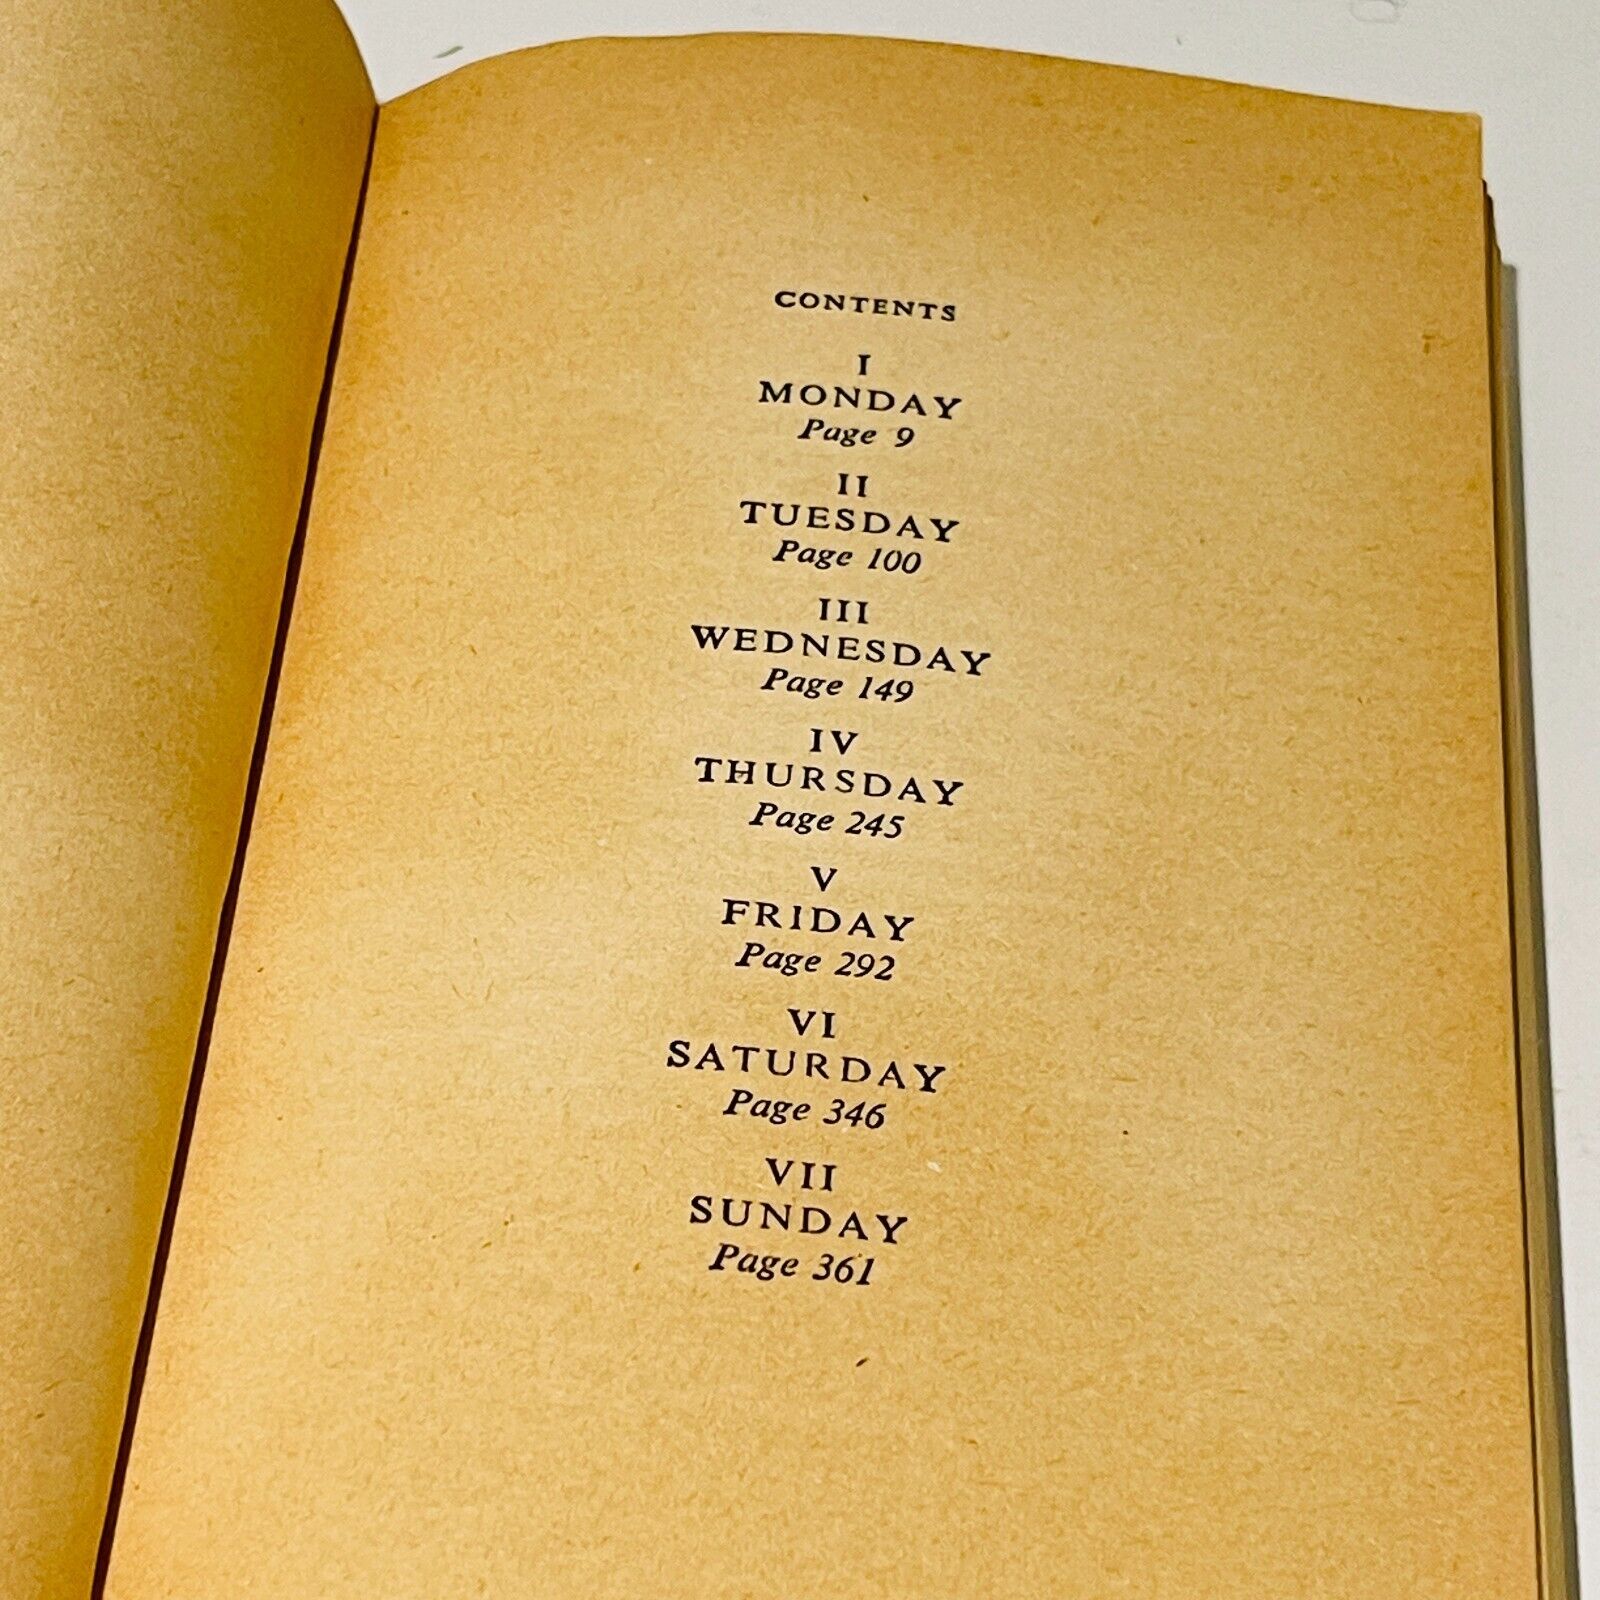 CONTENTS
I
MONDAY
Page 9
II
TUESDAY
Page 100
III
WEDNESDAY
Page 149
IV
THURSDAY
Page 245
V
FRIDAY
Page 292
VI
SATURDAY
Page 346
VII
SUNDAY
Page 361